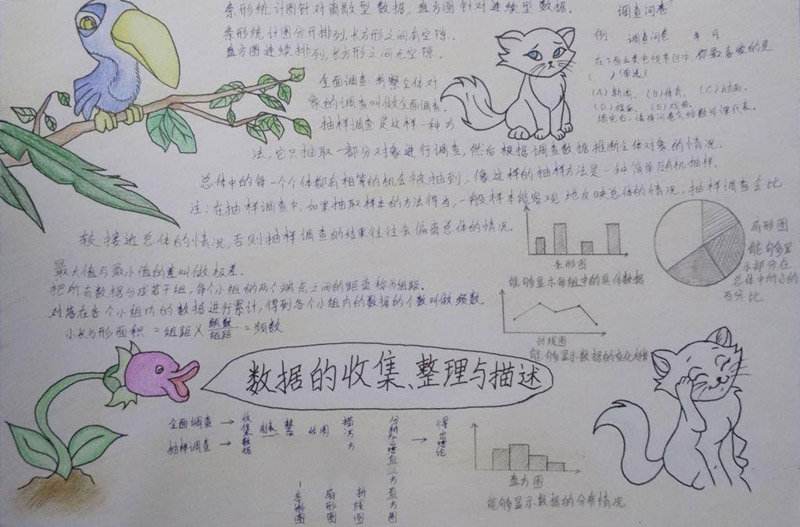 条形统计图针对离散型数据，直方图针对连续型数据。
条形统计图分开排列，长方形之间有空隙。
直方图连续排列，长方形之间无空隙。
全面调查 考察全体对
象的调查叫做全面调查。
抽样调查是这样一种方
法，它只抽取一部分对象进行调查，然后根据调查数据推断全体对象的情况。
总体中的每一个个体都有相等的机会被抽到，像这样的抽样方法是一种简单随机抽样。
注：在抽样调查中，如果抽取样本的方法得当，一般样本能客观地反映总体的情况，抽样调查会比
较接近总体的情况，否则抽样调查的结果往往会偏离总体的情况。
调查问卷
例： 调查问卷 年 月
在下面五类电视节目中，你最喜爱的是
（ ）（单选）
(A)新闻，(B)体育，(C)动画，
(D)娱乐，(E)戏曲，
填完后，请将问卷交给数学课代表。
最大值与最小值的差叫做极差。
把所有数据分成若干组，每个小组的两个端点之间的距离称为组距。
对落在各个小组内的数据进行累计，得到各个小组内的数据的个数叫做频数。
小长方形面积 = 组距 × 频数/组距 = 频数
条形图
能够显示每组中的具体数据
扇形图
能够显
示部分在
总体中所占的
百分比
折线图
能够显示数据的变化趋势
数据的收集、整理与描述
全面调查 →
抽样调查 →
收集数据
整
描
得出结论
条形图
扇形图
折线图
直方图
直方图
能够显示数据的分布情况